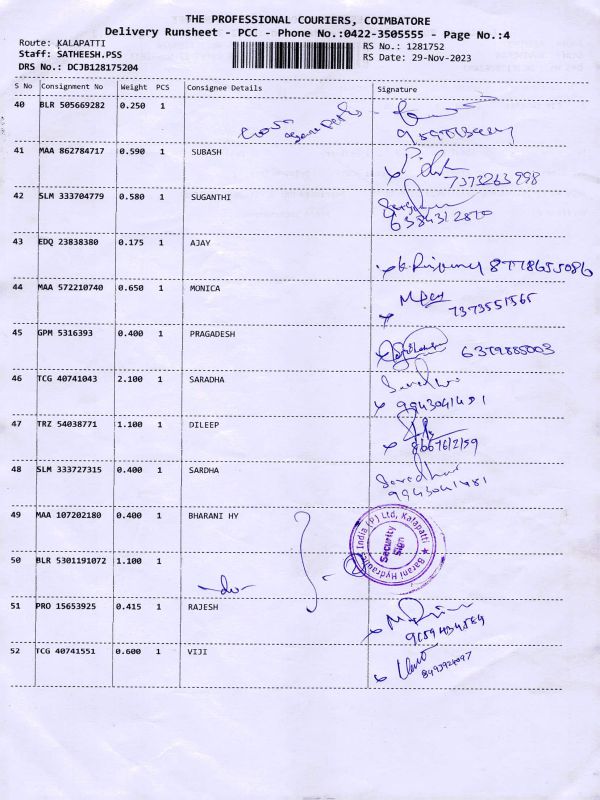 THE PROFESSIONAL COURIERS, COIMBATORE
Delivery Runsheet - PCC - Phone No.:0422-3505555 - Page No.:4
Route: KALAPATTI
RS No.: 1281752
Staff: SATHEESH.PSS
RS Date: 29-Nov-2023
DRS No.: DCJB128175204
S No Consignment No Weight PCS Consignee Details Signature
40 BLR 505669282 0.250 1
41 MAA 862784717 0.590 1 SUBASH
7373263998
42 SLM 333704779 0.580 1 SUGANTHI
6384312870
43 EDQ 23838380 0.175 1 AJAY
8778655086
44 MAA 572210740 0.650 1 MONICA
7373551565
45 GPM 5316393 0.400 1 PRAGADESH
6379885003
46 TCG 40741043 2.100 1 SARADHA
Saradha
9943041481
47 TRZ 54038771 1.100 1 DILEEP
48 SLM 333727315 0.400 1 SARDHA
9943041481
49 MAA 107202180 0.400 1 BHARANI HY
Barani Hydraulics India (P) Ltd, Kalapatti
Security
Sign
50 BLR 5301191072 1.100 1
-do-
51 PRO 15653925 0.415 1 RAJESH
52 TCG 40741551 0.600 1 VIJI